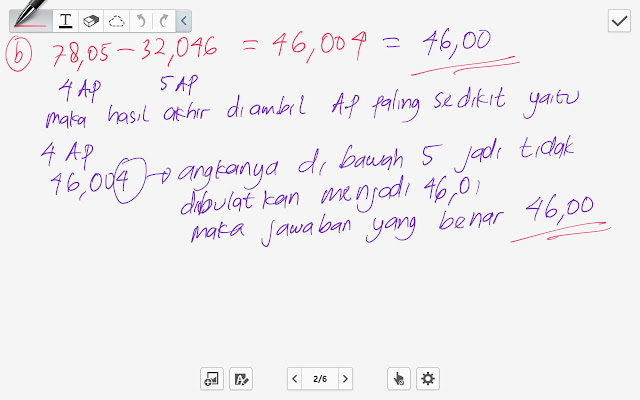 T
b 78,05 - 32,046 = 46,004 = 46,00
4 AP 5 AP
maka hasil akhir diambil AP paling sedikit yaitu
4 AP
46,004 → angkanya di bawah 5 jadi tidak
dibulatkan menjadi 46,01
maka jawaban yang benar 46,00
2/6